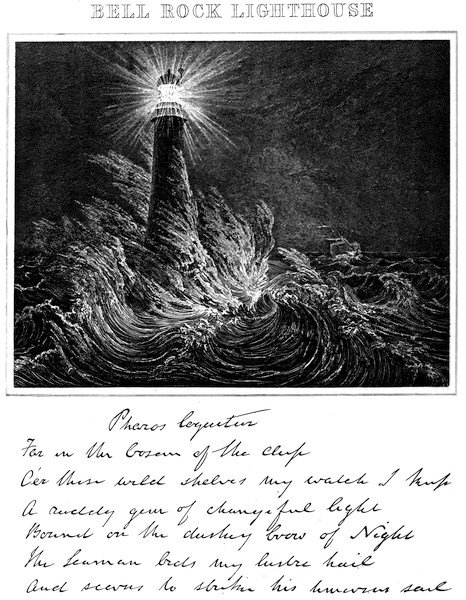 BELL ROCK LIGHTHOUSE
Pharos loquitur
Far in the bosom of the deep
O'er these wild shelves my watch I keep
A ruddy gem of changeful light
Bound on the dusky brow of Night
The Seaman bids my lustre hail
And scorns to strike his timorous sail